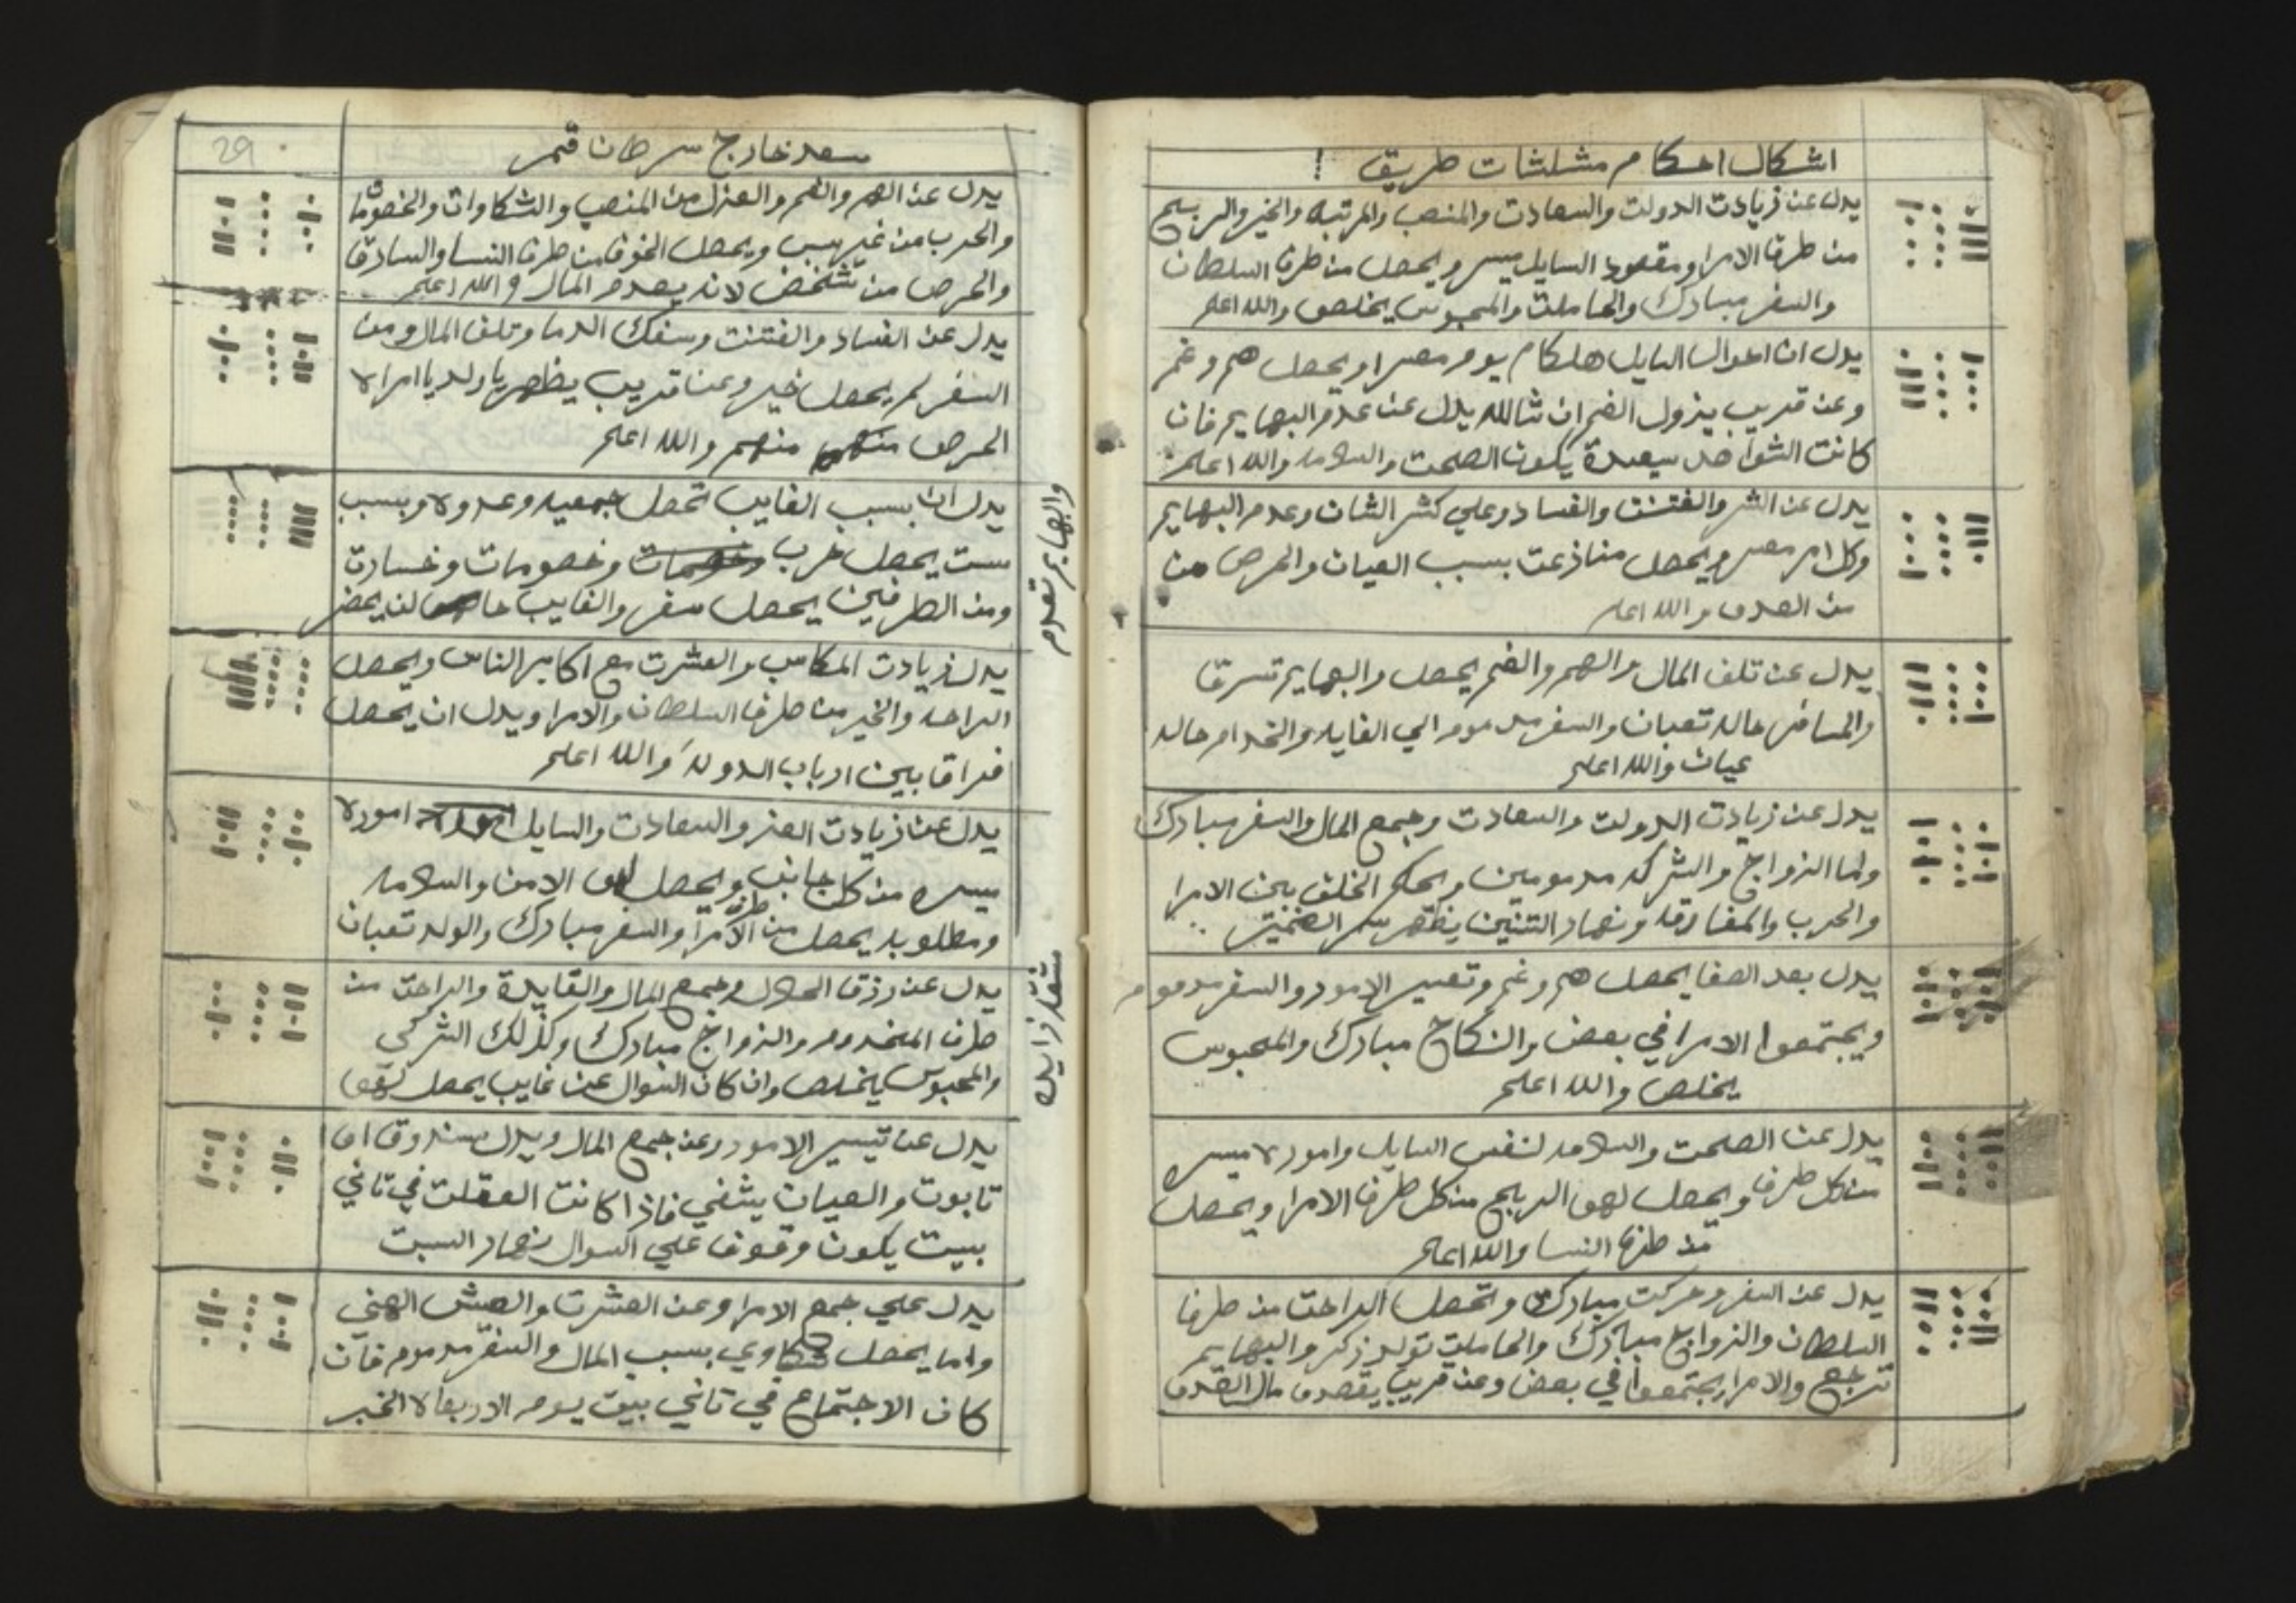 اشكال احكام مثلثات طريق
يدل عن زيادت الدولت والسعادت والمنصب والمرتبه والخير والربح
من طرف الامرا ومقصود السايل ميسر ويحصل من طرف السلطان
والسفر مبارك والحاملت والمحبوس يخلص والله اعلم
يدل ان احوال السايل هلكام يوم معسرا ويحصل هم وغم
وعن قريب يزول الغم ان شالله يدل عن عدم البهايم فان
كانت الشواهد سعيدة يكون الصحت والسلامه والله اعلم
يدل عن الشر والفتنت والفساد وعلي كشر الشان وعدم البهايم
وكل امر معسر ويحصل منازعت بسبب العيان والحرص من
من العدو والله اعلم
يدل عن تلف المال والهم والغم يحصل والبهايم تسرق
والمسافر حاله تعبان والسفر مدموم الي الغايه والخدام حاله
عيان والله اعلم
يدل عن زيادت الدولت والسعادت وجمع المال والسفر مبارك
واما الزواج والشركه مدمومين ويحكم الخلف بين الامرا
والحرب والمفارقه ونهار التنين يظهر سر الضمير
يدل بعد الصفا يحصل هم وغم وتعسير الامور والسفر مدموم
ويجتمعوا الامرا في بعض والنكاح مبارك والمحبوس
يخلص والله اعلم
يدل عن الصحت والسلامه لنفس السايل واموره ميسره
من كل طرف ويحصل لهو الربح من كل طرف الامرا ويحصل
من طرف النسا والله اعلم
يدل عن السفر وحركت مبارك وتحصل الراحت من طرف
السلطان والزواج مبارك والحاملت تولد ذكر والبهايم
ترجع والامرا يجتمعوا في بعض وعن قريب يقصدو مال العدو
29
سعد خارج سرطان قمر
يدل عن الهم والغم والعزل من المنصب والشكاوات والخصومات
والحرب من غير سبب ويحصل الخوف من طرف النسا والسادق
والحرص من شخص لانه يعدم المال والله اعلم
يدل عن الفساد والفتنت وسفك الدما وتلف المال ومن
السفر لم يحصل خير وعن قريب يظهر يا ولد يا امراه
الحرص منهم والله اعلم
يدل ان بسبب الغايب تحصل جمعيه وعدوه وبسبب
ست يحصل خرب وخصومات وخسارت
ومن الطرفين يحصل سفر والغايب لن يحضر
والبهايم تعدم
يدل زيادت المكاسب والعشرت مع اكابر الناس ويحصل
الراحه والخير من طرف السلطان والامرا ويدل ان يحصل
فراق بين ارباب الدوله والله اعلم
يدل عن زيادت العز والسعادت والسايل اموره
ميسره من كل جانب ويحصل لهو الامن والسلامه
ومطلوبه يحصل من طرف الامرا والسفر مبارك والولد تعبان
يدل عن رزق الحلال وجمع المال والفايدة والراحت من
طرف المخدوم والزواج مبارك وكذلك الشركي
والمحبوس يخلص وان كان السوال عن غايب يحصل لهو
منفعة زايده
يدل عن تيسير الامور وعن جمع المال ويدل سندوق او
تابوت والعيان يشفي فاذا كانت العقلت في تاني
بييت يكون وقوف علي السوال نهار السبت
يدل علي جمع الامرا وعن العشرت والعيش الهني
واما يحصل شكاوي بسبب المال والسفر مدموم فان
كان الاجتماع في تاني بيت يوم الاربعاه الخبر